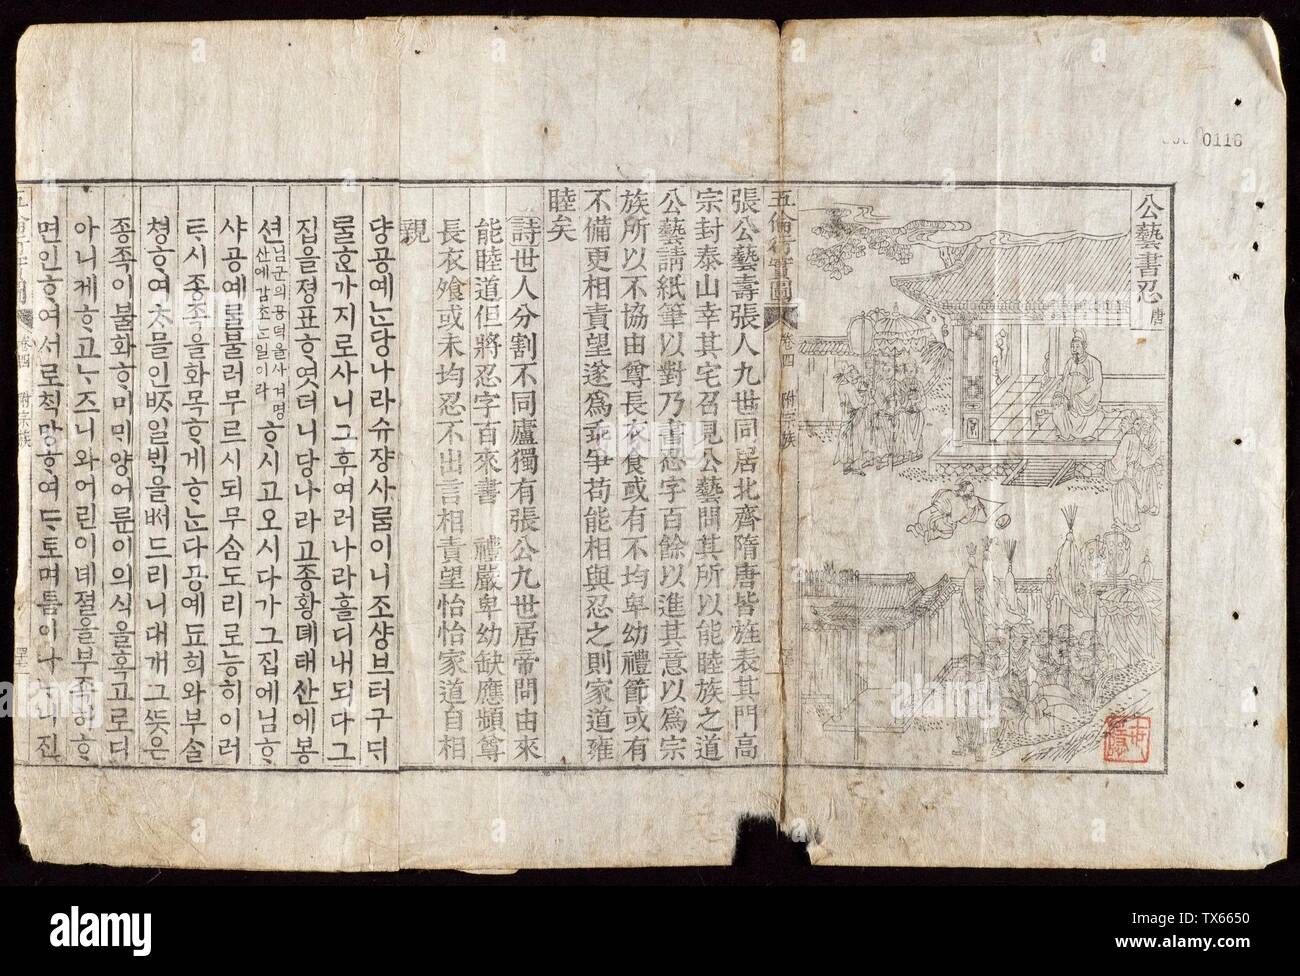 0116
公藝書忍 唐
五倫行實圖 卷四 附宗族
張公藝壽張人九世同居北齊隋唐皆旌表其門高
宗封泰山幸其宅召見公藝問其所以能睦族之道
公藝請紙筆以對乃書忍字百餘以進其意以爲宗
族所以不協由尊長衣食或有不均卑幼禮節或有
不備更相責望遂爲乖爭苟能相與忍之則家道雍
睦矣
詩世人分割不同廬獨有張公九世居帝問由來
能睦道但將忍字百來書 禮嚴卑幼缺應頻尊
長衣飧或未均忍不出言相責望怡怡家道自相
親
댱공예ᄂᆞᆫ당나라슈쟝사ᄅᆞᆷ이니조샹브터구ᄃᆡ
ᄅᆞᆯᄒᆞᆫ가지로사니그후여러나라흘디내되다그
집을졍표ᄒᆞ엿더니당나라고종황뎨태산에봉
션산에감조ᄂᆞᆫ일이라ᄒᆞ시고오시다가그집에님ᄒᆞ
샤공예ᄅᆞᆯ블러무르시되무ᄉᆞᆷ도리로능히이러
ᄐᆞ시종족을화목ᄒᆞ게ᄒᆞᄂᆞᆫ다공예됴희와부슬
쳥ᄒᆞ여ᄎᆞᄆᆞᆯ인ᄍᆞ일ᄇᆡᆨ을ᄡᅥ드리니대개그ᄯᅳᆺ은
종족이불화ᄒᆞ미ᄆᆡ양어룬이의식을혹고로디
아니게ᄒᆞ고ᄂᆞᄌᆞ니와어린이녜졀을부족히ᄒᆞ
면인ᄒᆞ여서로ᄎᆡᆨ망ᄒᆞ여ᄃᆞ토며틈이나ᄂᆞ니진
卷四 附宗族
alamy
Image ID: TX6650
www.alamy.com